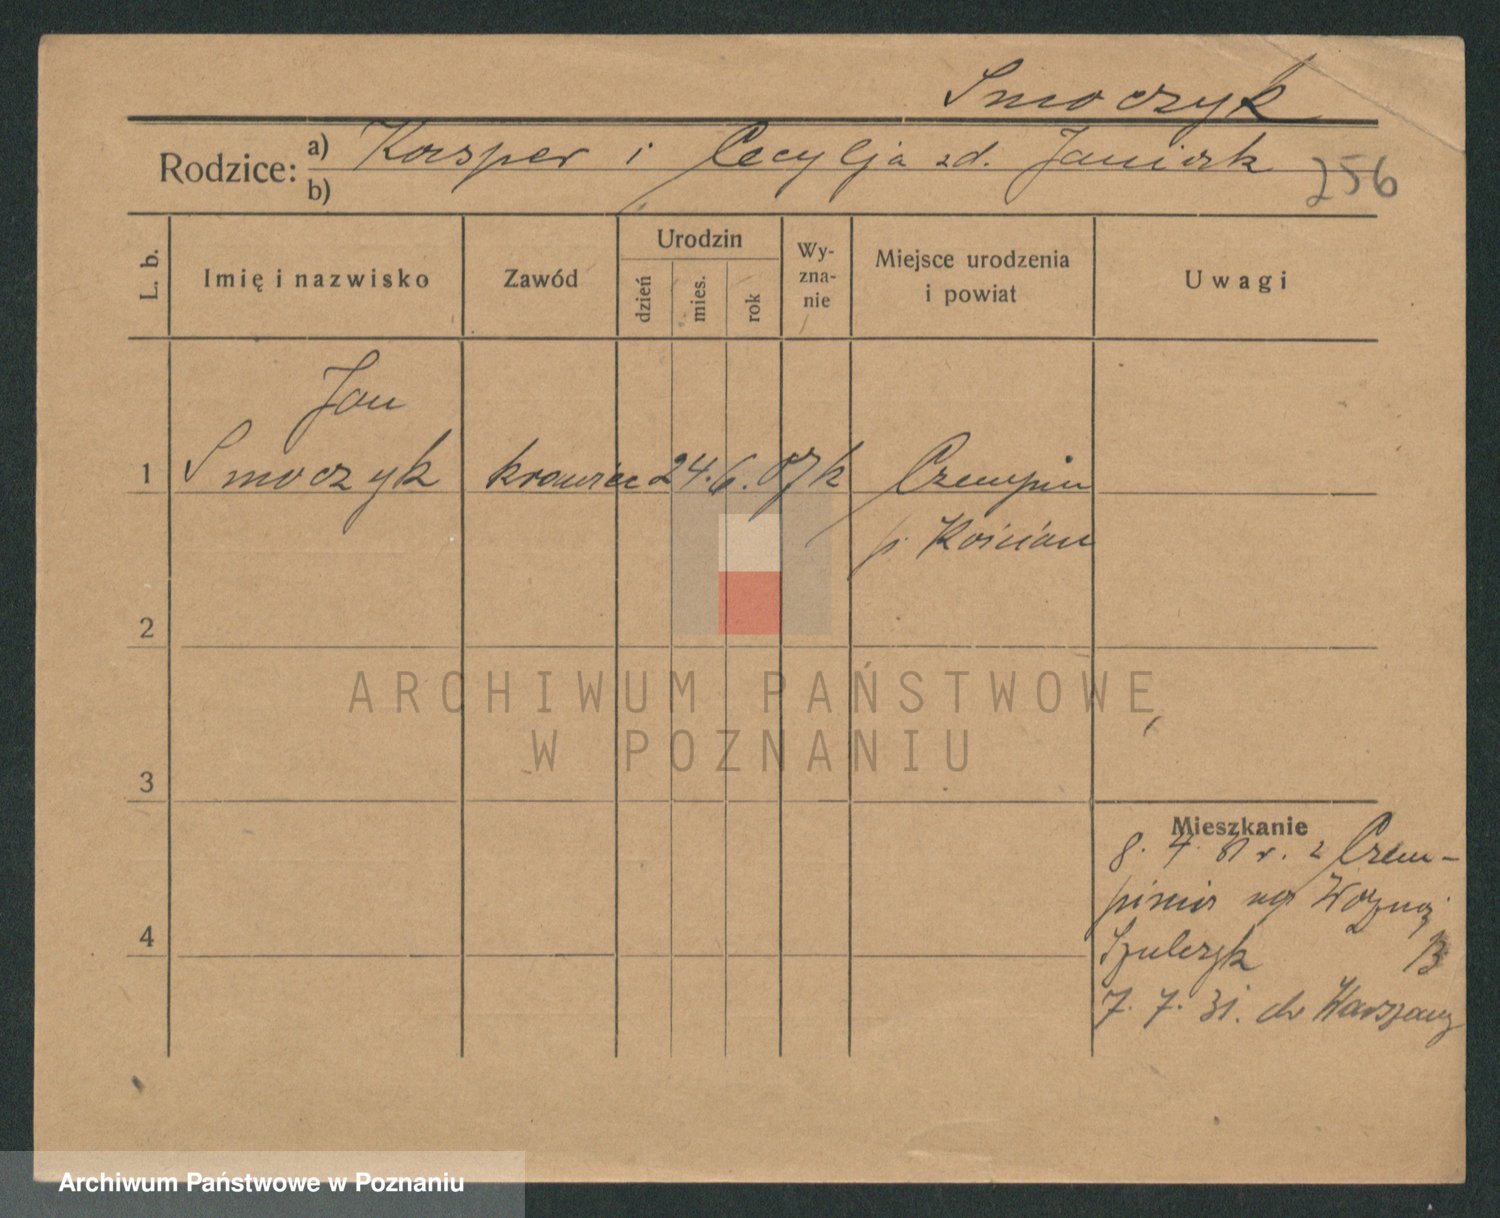 Smoczyk
Rodzice: a) Kasper i Cecylja zd. Janiak
b)
256
L. b. Imię i nazwisko Zawód Urodzin dzień mies. rok Wy-zna-nie Miejsce urodzenia i powiat Uwagi
Jan
1 Smoczyk krawiec 24. 6. 07 k Czempin
p. Kościan
2
ARCHIWUM PAŃSTWOWE
W POZNANIU
3
Mieszkanie
8. 4. 31 r. z Czem-
pinia
4
Szulczyk
7. 7. 31. do Warszawy
Archiwum Państwowe w Poznaniu